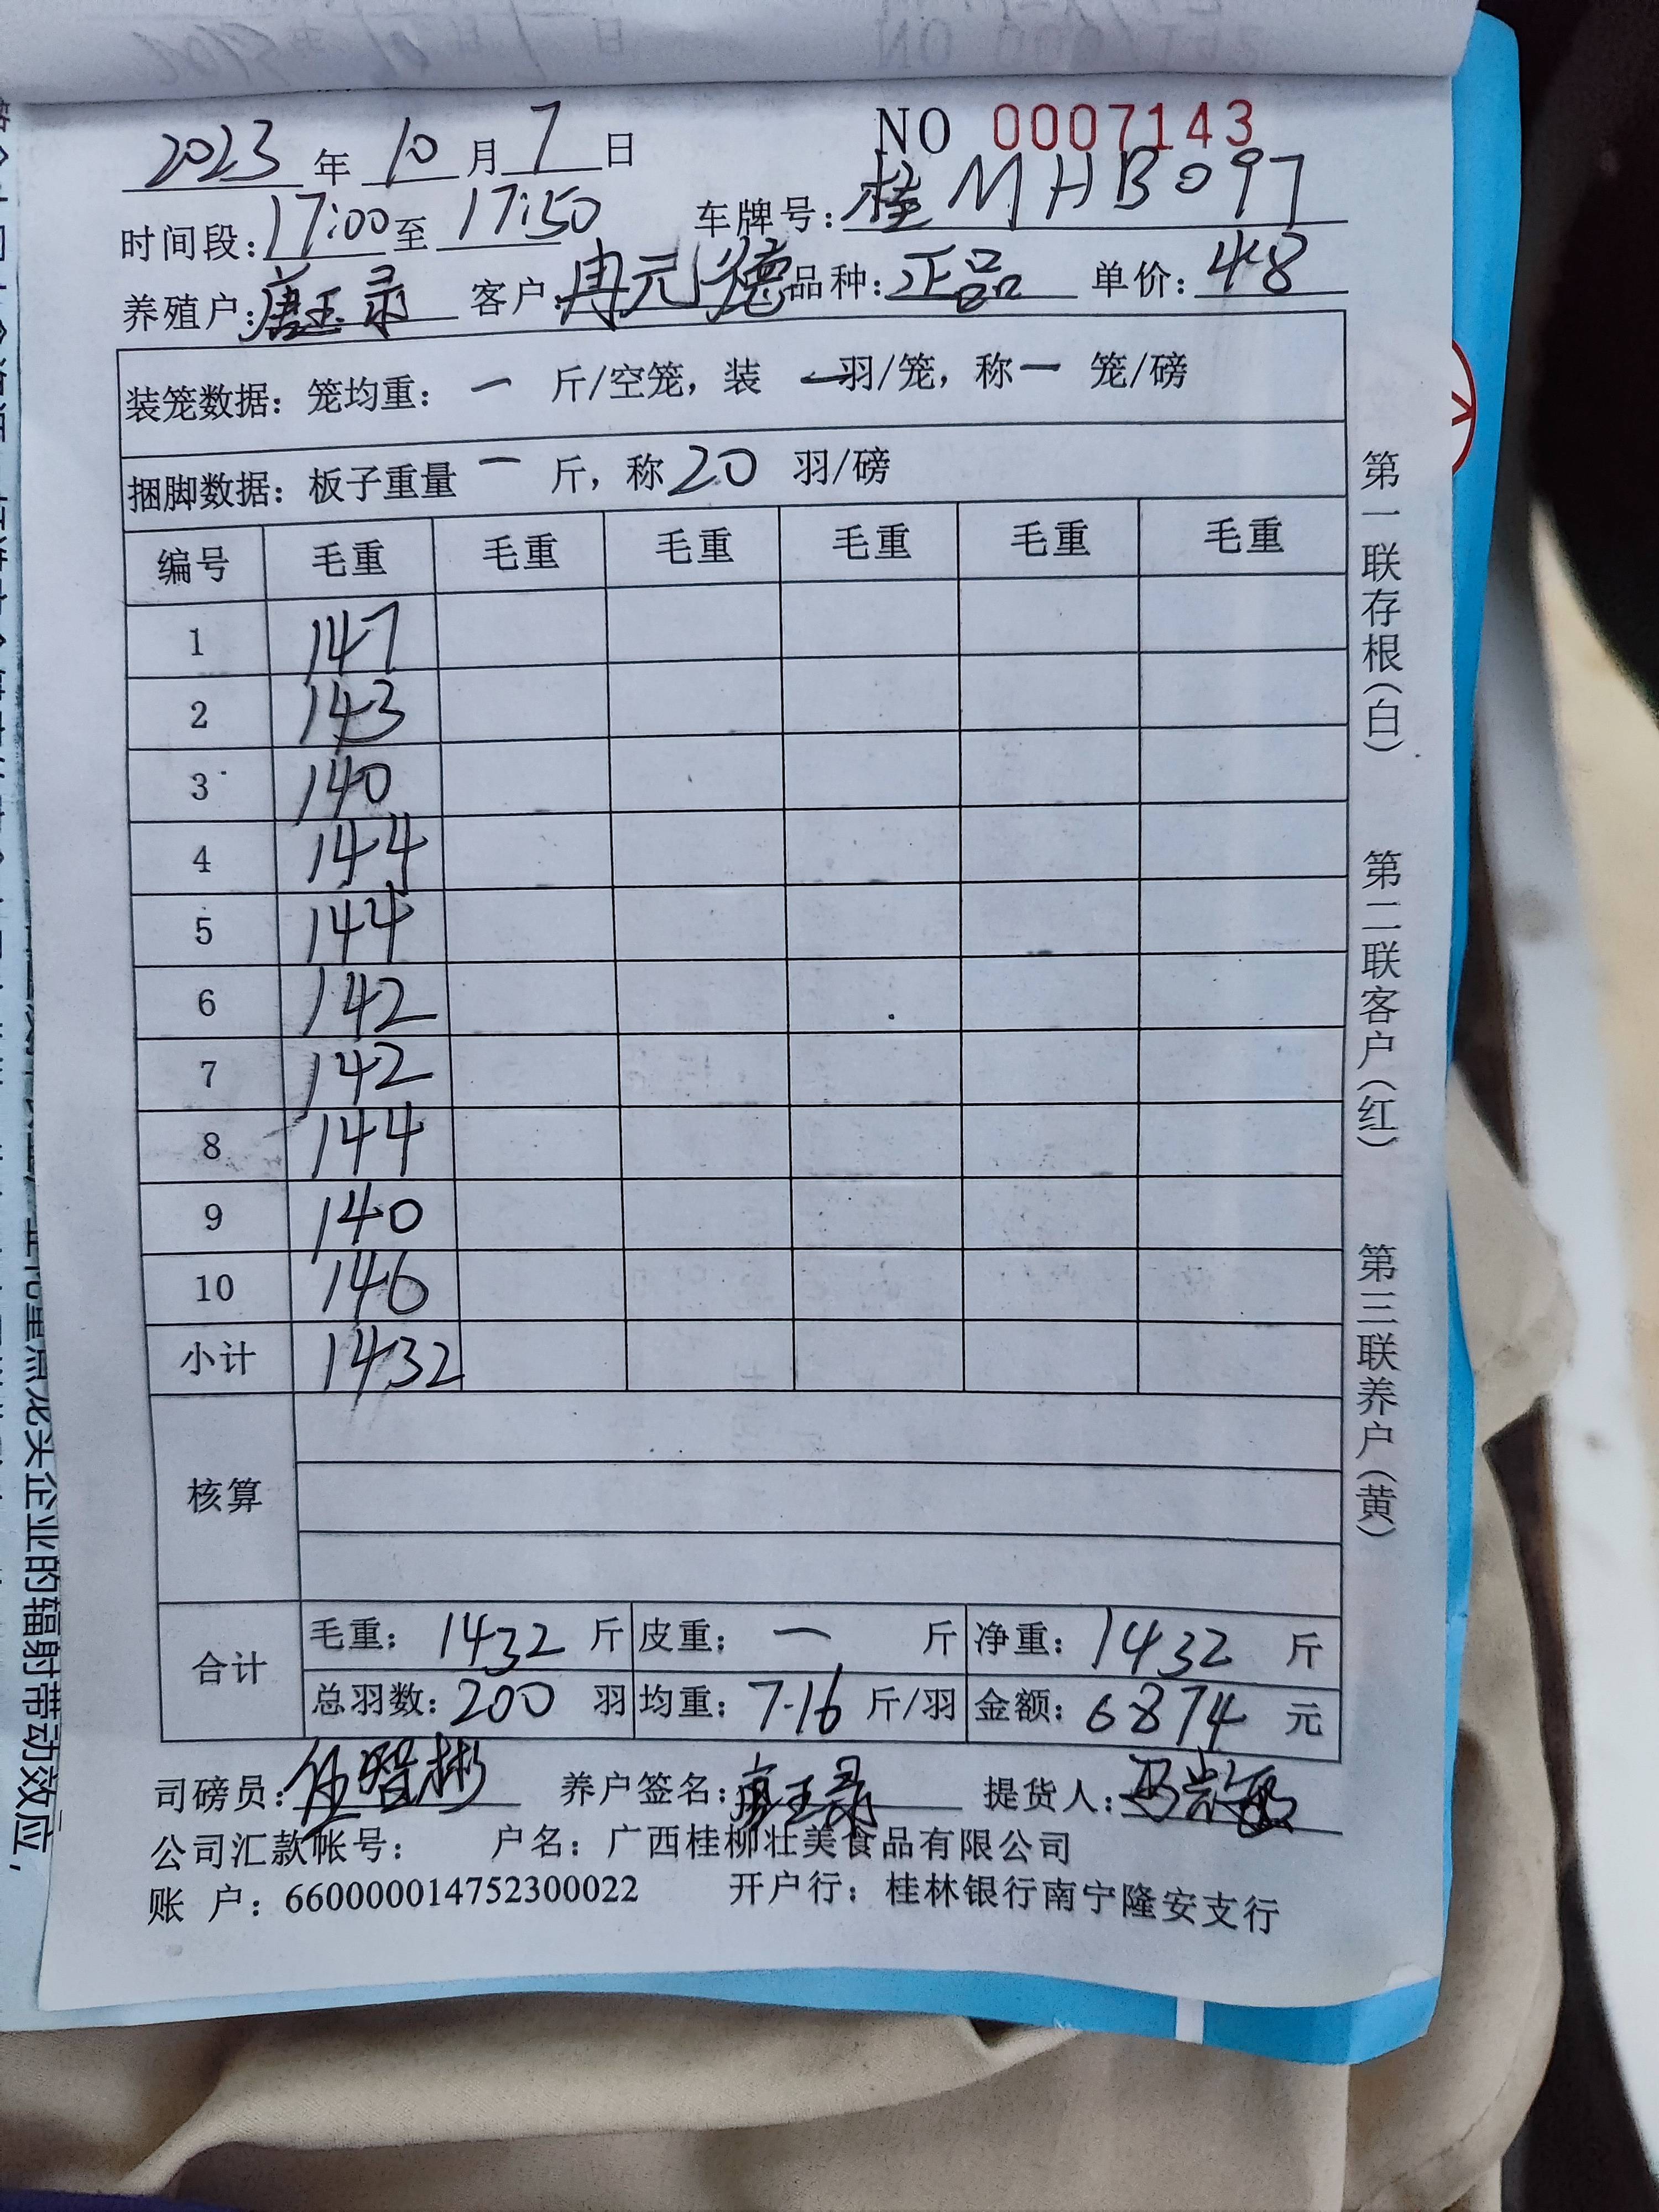 NO 0007143
2023年10月7日
时间段:17:00至17:50 车牌号:桂MHB097
养殖户:唐玉录 客户:冉元德 品种:正品 单价:4.8
装笼数据: 笼均重: 一 斤/空笼, 装 一 羽/笼, 称 一 笼/磅
捆脚数据: 板子重量 一 斤, 称 20 羽/磅
编号 毛重 毛重 毛重 毛重 毛重 毛重
1 147
2 143
3 140
4 144
5 144
6 142
7 142
8 144
9 140
10 146
小计 1432
核算
合计
毛重: 1432 斤 皮重: 一 斤 净重: 1432 斤
总羽数: 200 羽 均重: 7.16 斤/羽 金额: 6874 元
司磅员:任智彬 养户签名:唐玉录 提货人:
公司汇款帐号: 户名: 广西桂柳壮美食品有限公司
账 户: 660000014752300022 开户行: 桂林银行南宁隆安支行
第一联存根(白)
第二联客户(红)
第三联养户(黄)
龙头企业的辐射带动效应,